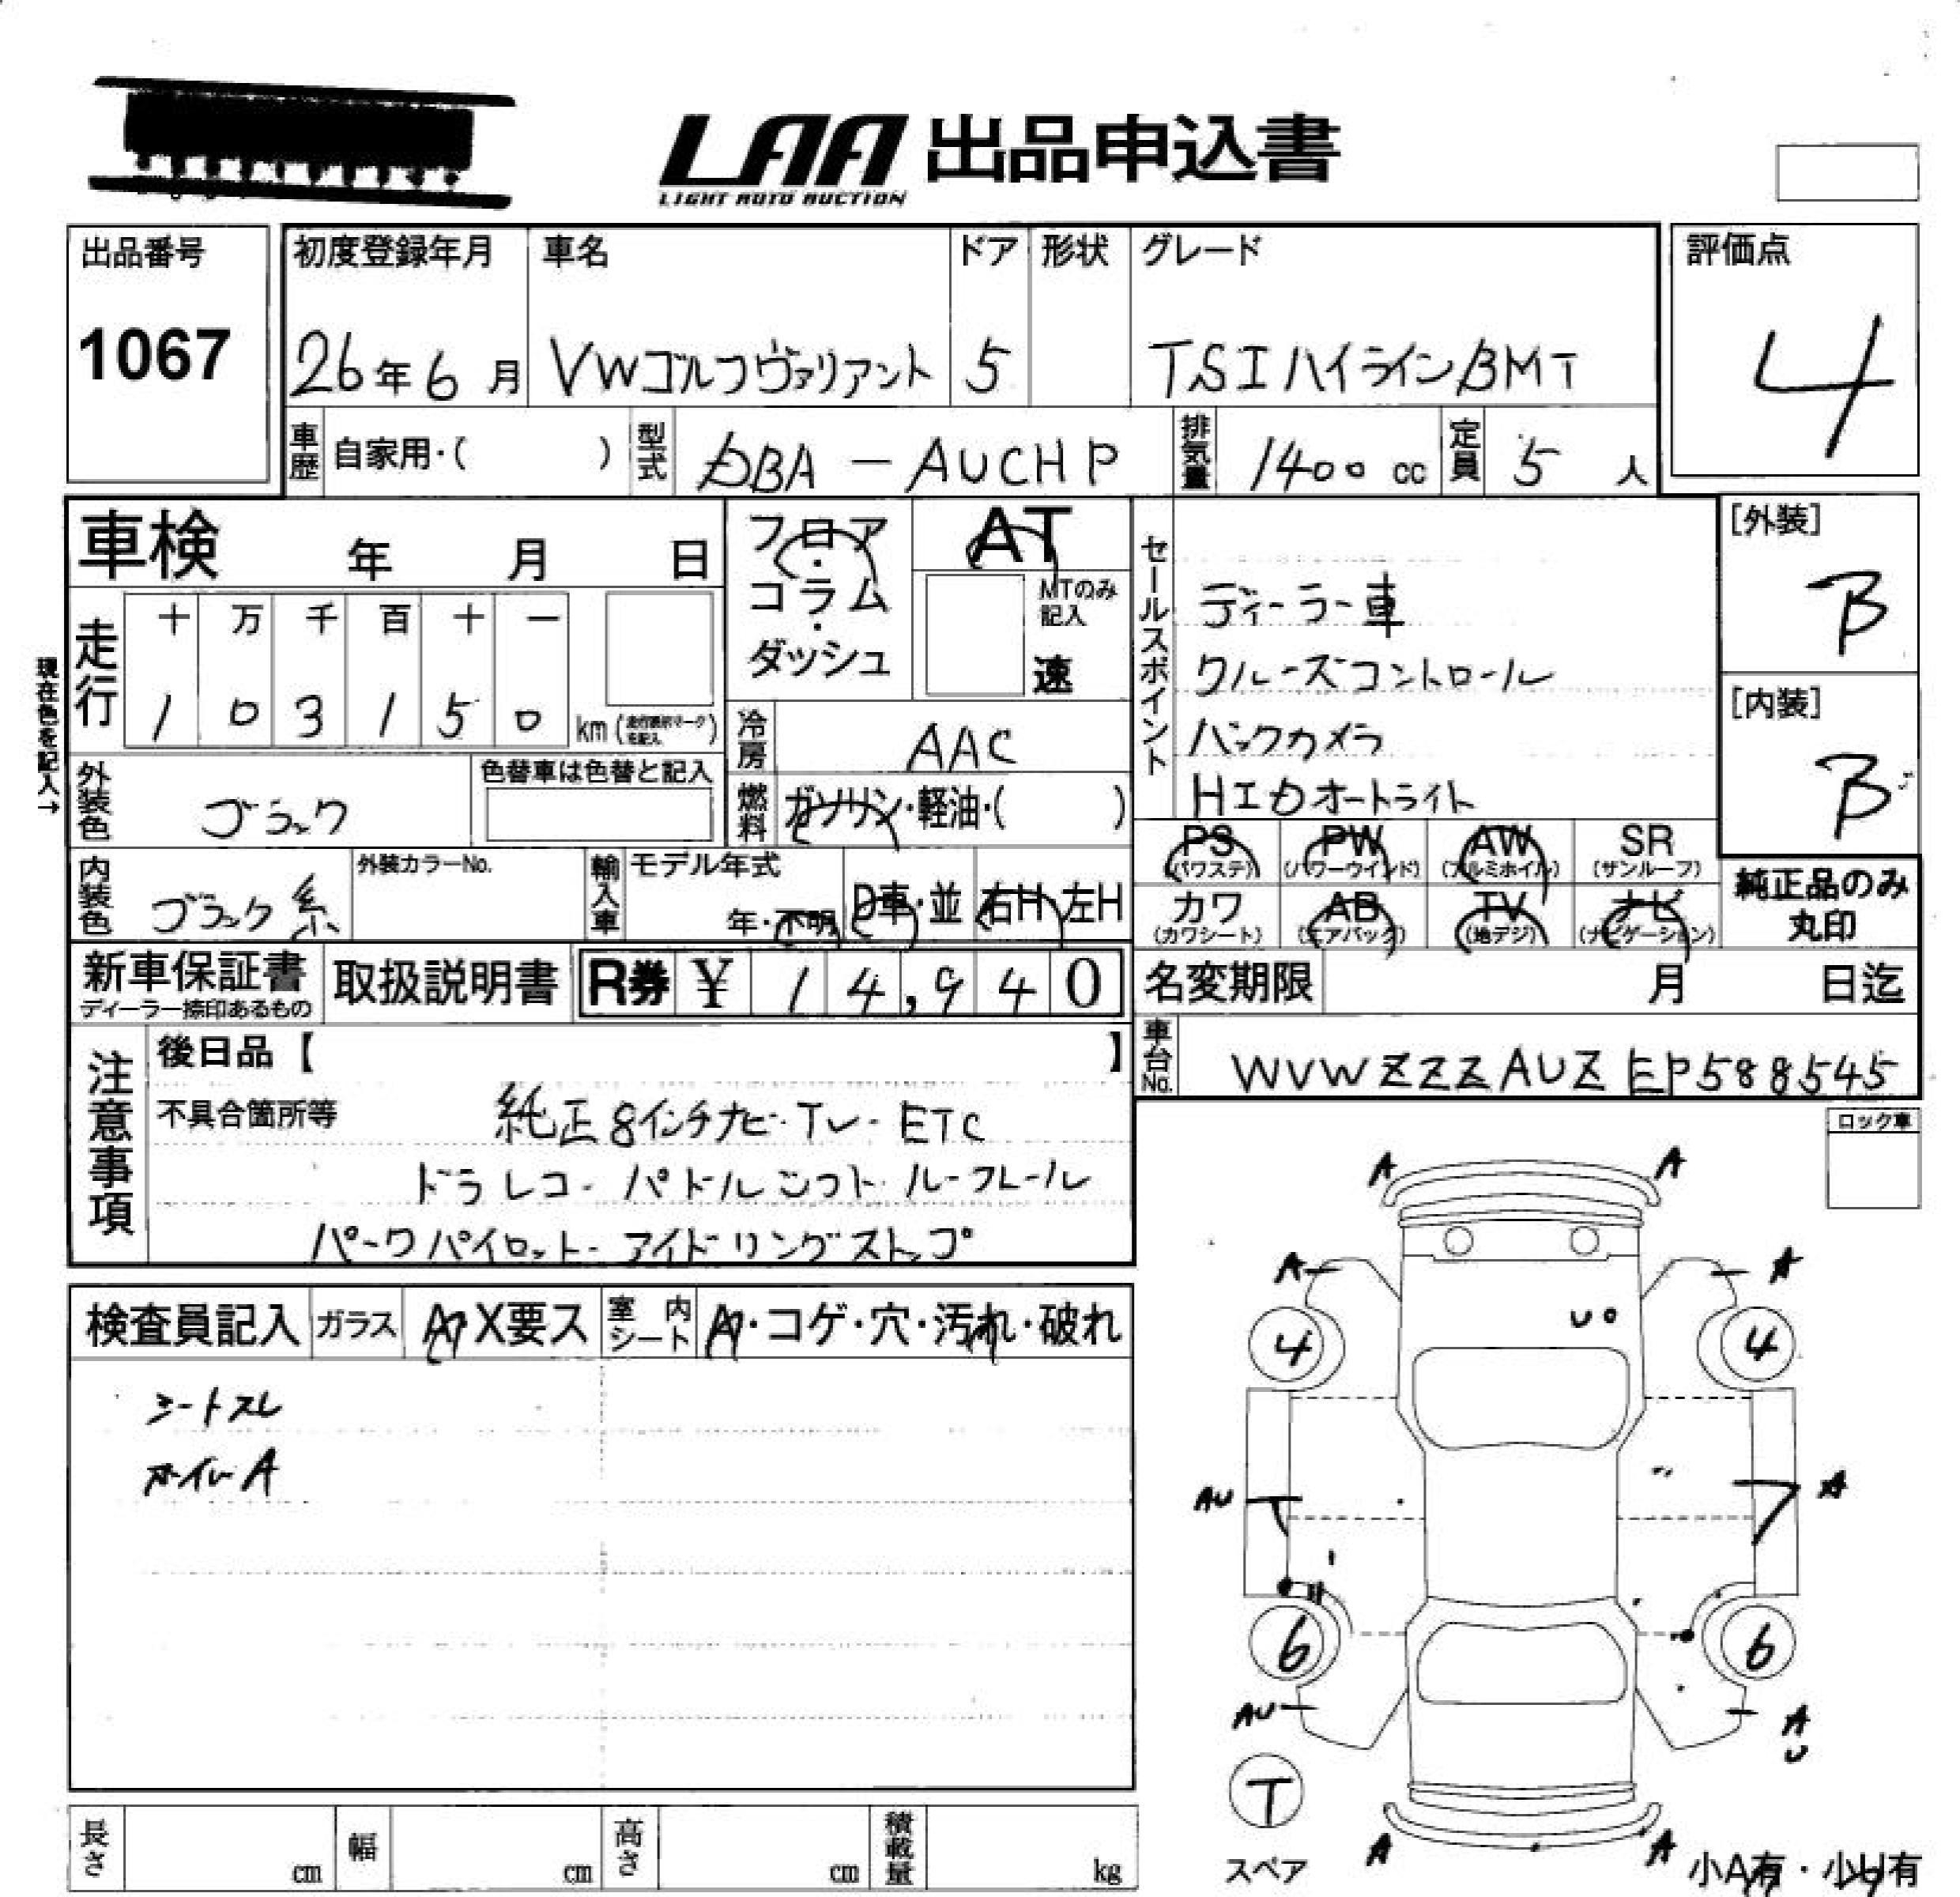 LAA 出品申込書
LIGHT AUTO AUCTION
出品番号
1067
初度登録年月
26年6月
車名
VWゴルフヴァリアント
ドア
5
形状
グレード
TSIハイラインBMT
評価点
4
車歴 自家用・( )
型式 DBA-AUCHP
排気量 1400 cc
定員 5 人
車検 年 月 日
フロア・コラム・ダッシュ
AT
MTのみ記入
速
セールスポイント
ディーラー車
クルーズコントロール
バックカメラ
HIDオートライト
[外装]
B
[内装]
B
現在色を記入→
走行
十 万 千 百 十 一
1 0 3 1 5 0 km
冷房 AAC
外装色 ブラック
色替車は色替と記入
燃料 ガソリン・軽油・( )
PS (パワステ) PW (パワーウインド) AW (アルミホイル) SR (サンルーフ)
カワ (カワシート) AB (エアバック) TV (地デジ) ナビ (ナビゲーション)
純正品のみ
丸印
内装色 ブラック系
外装カラーNo.
輸入車 モデル年式
年・不明 D車・並 右H 左H
新車保証書
ディーラー捺印あるもの
取扱説明書
R券 ¥ 14,940
名変期限 月 日迄
車台No. WVWZZZAUZEP588545
注意事項
後日品【 】
不具合箇所等 純正8インチナビ・TV・ETC
ドラレコ・パドルシフト・ルーフレール
パークパイロット・アイドリングストップ
ロック車
検査員記入 ガラス A X要ス 室内シート A・コゲ・穴・汚れ・破れ
シートスレ
ホイルA
A A
A A
U
4 4
AU A
6 6
AU A
U
T
スペア
A A
小A有・小U有
長さ cm 幅 cm 高さ cm 積載量 kg